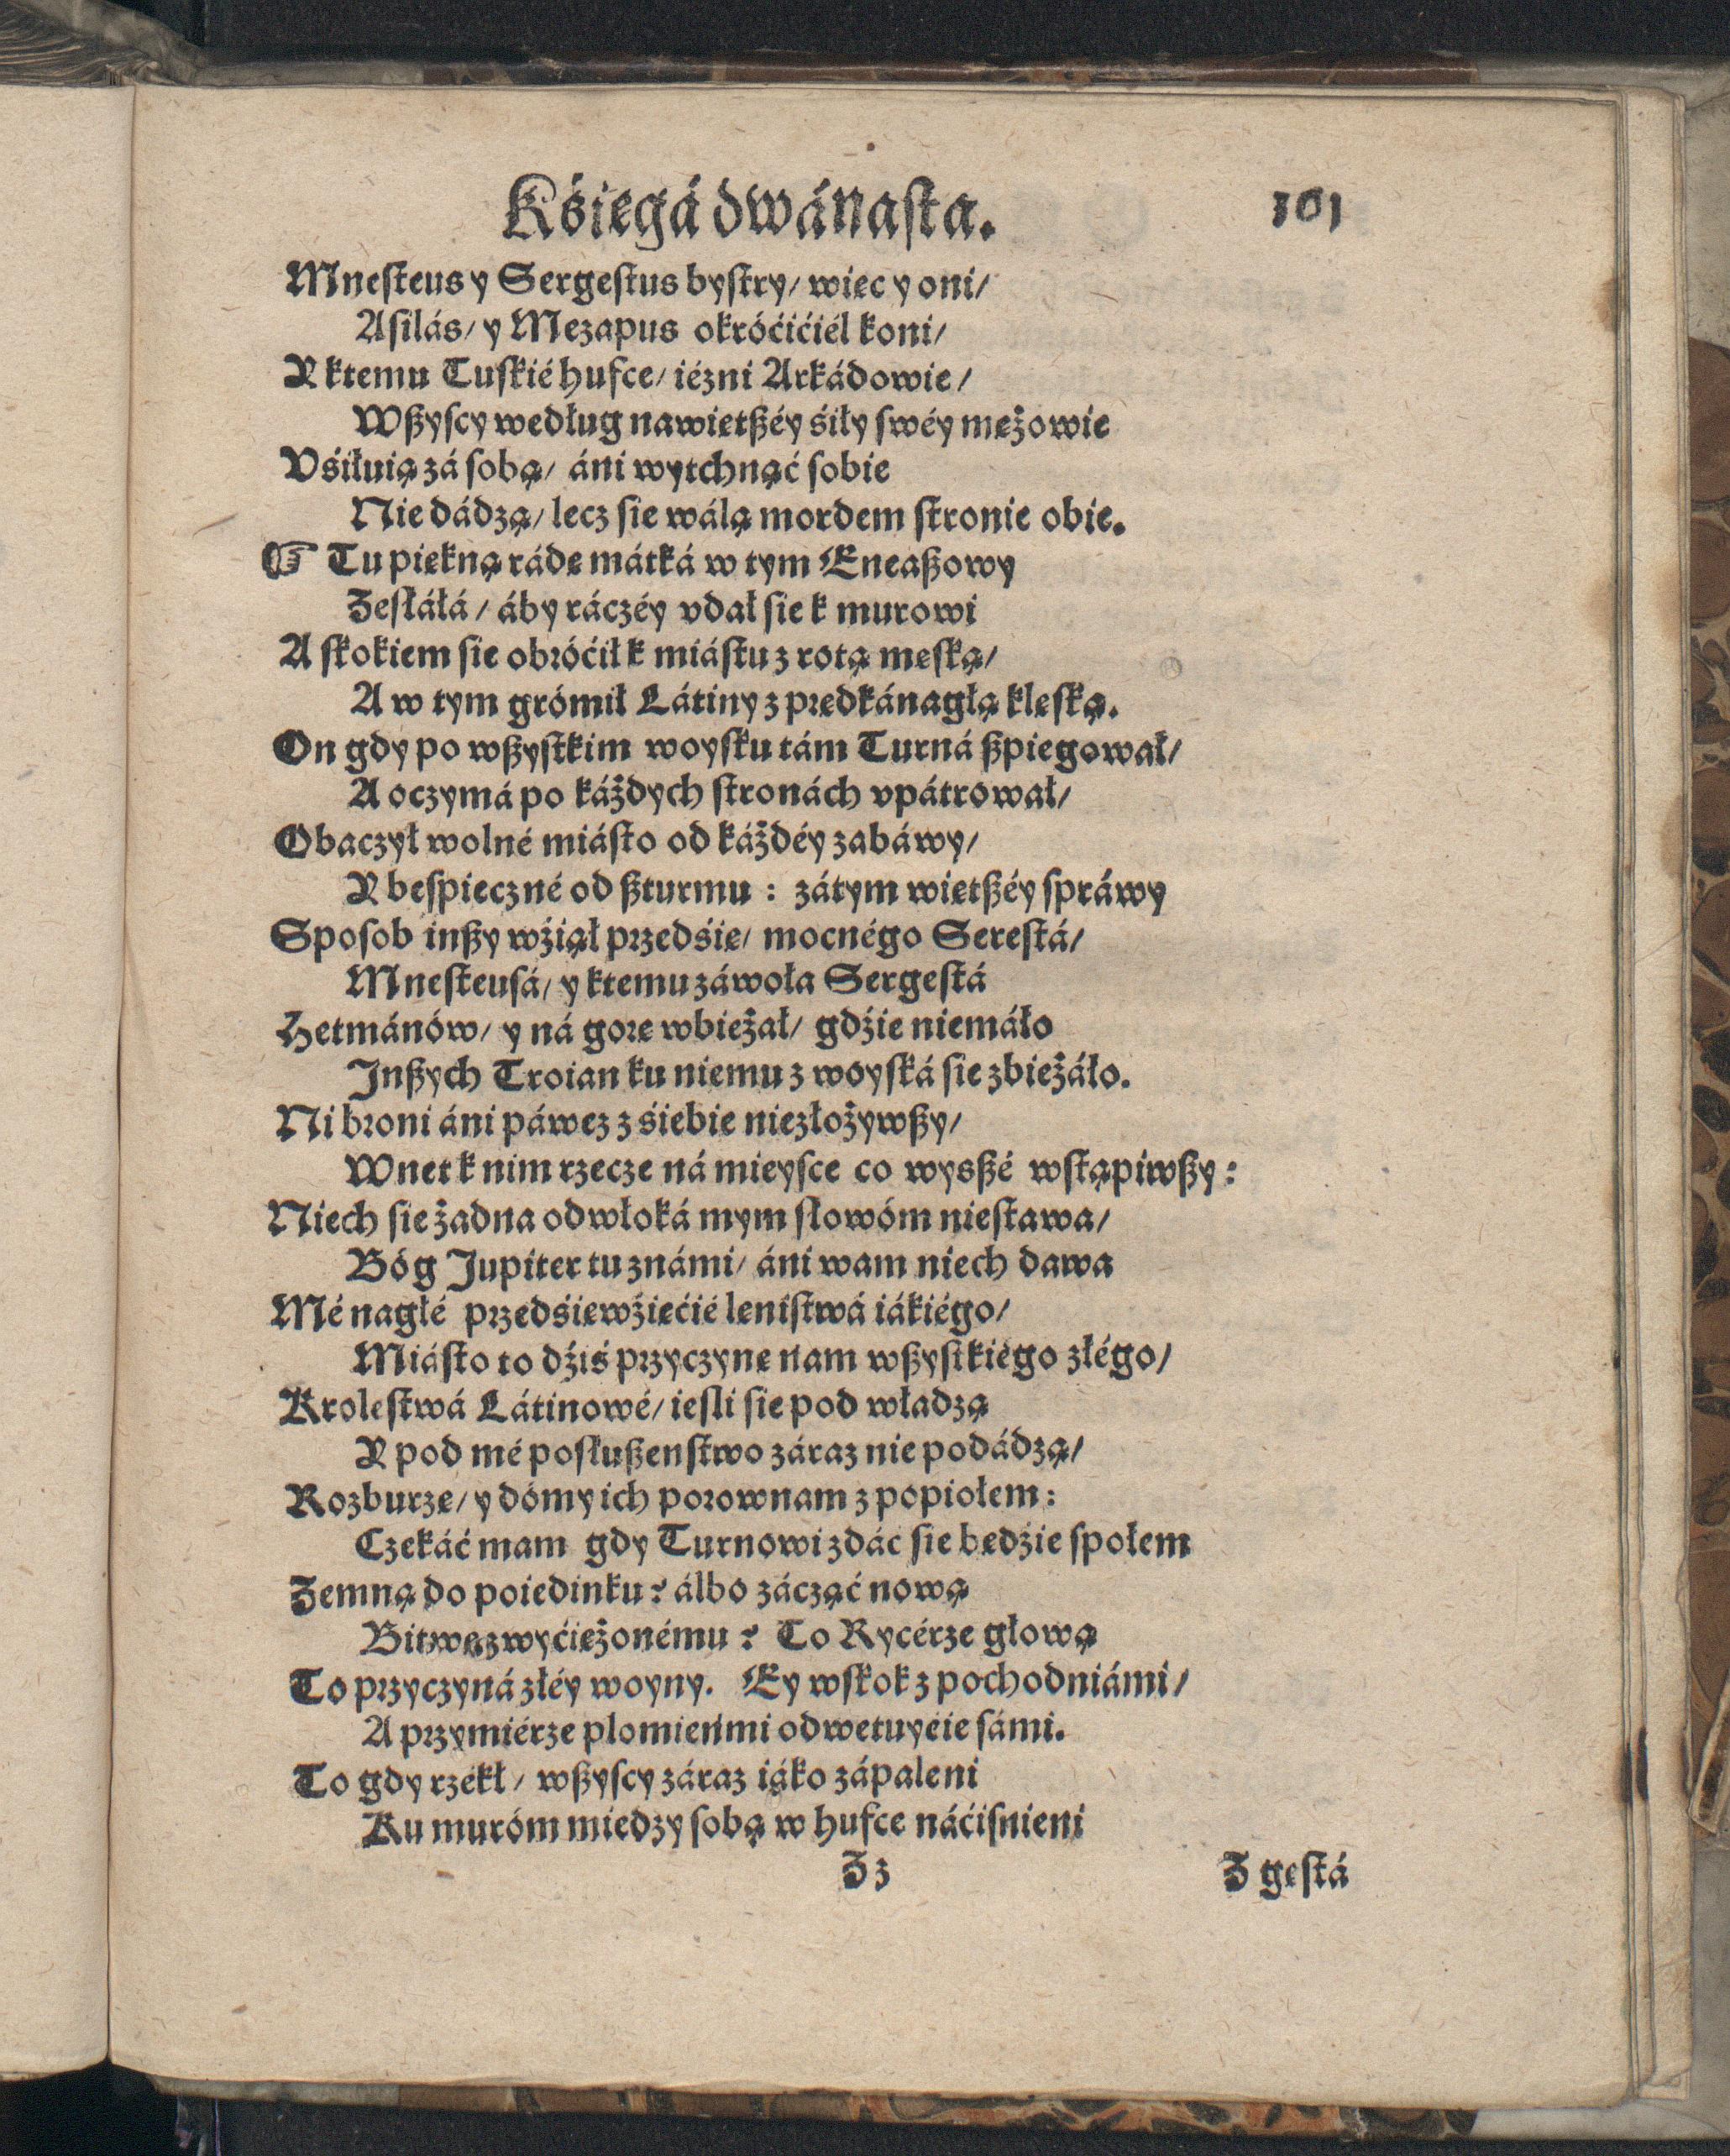 Kśięgá dwánaſta. 301
Mneſteus y Sergeſtus byſtry/ więc y oni/
Aſilás/ y Mezapus okróćićiél koni/
Y ktemu Tuſkié hufce/ iézni Arkádowie/
Wßyſcy według nawiętßéy śiły ſwéy mężowie
Vśiłuią zá ſobą/ áni wytchnąć ſobie
Nie dádzą/ lecz ſie wálą mordem ſtronie obie.
☞ Tu piękną rádę mátká w tym Eneaßowy
Zeſłáłá/ áby ráczéy vdał ſie k murowi
A ſkokiem ſie obróćił k miáſtu z rotą meſką/
A w tym grómił Látiny z prędká nagłą klęſką.
On gdy po wßyſtkim woyſku tám Turná ßpiegował/
A oczymá po káżdych ſtronách vpátrował/
Obaczył wolné miáſto od káżdéy zabáwy/
Y beſpieczné od ßturmu: zátym więtßéy ſpráwy
Sposob inßy wźiął przedśię/ mocnégo Sereſtá/
Mneſteuſá/ y ktemu záwoła Sergeſtá
Hetmánów/ y ná gorę wbieżał/ gdźie niemáło
Jnßych Troian ku niemu z woyſká ſie zbieżáło.
Ni broni áni páwez z śiebie niezłożywßy/
Wnet k nim rzecze ná mieyſce co wysßé wſtąpiwßy:
Niech ſie żadna odwłoká mym ſłowóm nieſtawa/
Bóg Jupiter tu známi/ áni wam niech dawa
Mé nagłé przedśięwźięćié leniſtwá iákiégo/
Miáſto to dźiś przyczynę nam wßyſtkiégo złégo/
Kroleſtwá Látinowé/ ieſli ſie pod władzą
Y pod mé poſłußenſtwo záraz nie podádzą/
Rozburzę/ y dómy ich porownam z popiołem:
Czekáć mam gdy Turnowi zdác ſie będźie ſpołem
Zemną do poiedinku? álbo zácząć nową
Bitwę zwyćiężonému? To Rycérze głową
To przyczyná złéy woyny. Ey wſkok z pochodniámi/
A przymiérze plomieńmi odwetuyćie ſámi.
To gdy rzekł/ wßyſcy záraz iáko zápaleni
Ku muróm miedzy ſobą w hufce náćiſnieni
Zz Z gęſtá